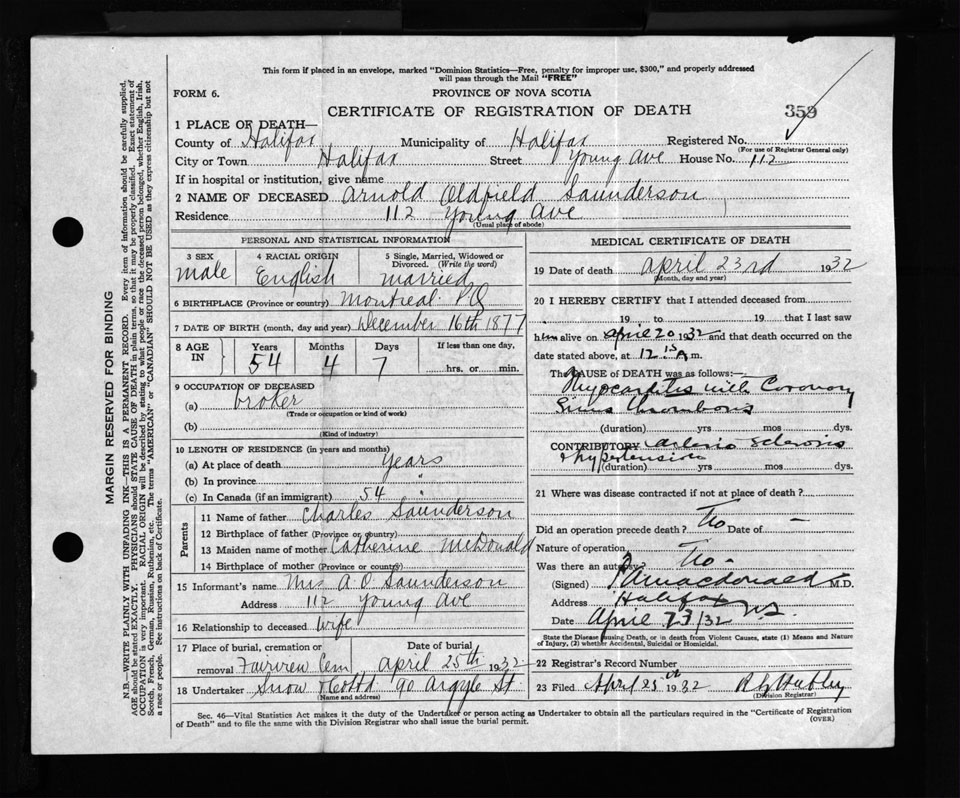 This form if placed in an envelope, marked "Dominion Statistics—Free, penalty for improper use, $300," and properly addressed
will pass through the Mail "FREE"
FORM 6.
PROVINCE OF NOVA SCOTIA
CERTIFICATE OF REGISTRATION OF DEATH
359
1 PLACE OF DEATH—
County of Halifax Municipality of Halifax Registered No.
(For use of Registrar General only)
City or Town Halifax Street Young Ave House No. 112
If in hospital or institution, give name
2 NAME OF DECEASED Arnold Oldfield Saunderson
Residence 112 Young Ave
(Usual place of abode)
PERSONAL AND STATISTICAL INFORMATION
3 SEX 4 RACIAL ORIGIN 5 Single, Married, Widowed or
Divorced. (Write the word)
male English married
6 BIRTHPLACE (Province or country) Montreal PQ
7 DATE OF BIRTH (month, day and year) December 16th 1877
8 AGE IN Years Months Days If less than one day,
54 4 7 hrs. or min.
9 OCCUPATION OF DECEASED
(a) broker
(Trade or occupation or kind of work)
(b)
(Kind of industry)
10 LENGTH OF RESIDENCE (in years and months)
(a) At place of death years
(b) In province "
(c) In Canada (if an immigrant) 54 "
Parents
11 Name of father Charles Saunderson
12 Birthplace of father (Province or country)
13 Maiden name of mother Catherine McDonald
14 Birthplace of mother (Province or country)
15 Informant's name Mrs A O Saunderson
Address 112 Young Ave
16 Relationship to deceased Wife
17 Place of burial, cremation or Date of burial
removal Fairview Cem April 25th 1932
18 Undertaker Snow & Co Ltd 90 Argyle St
(Name and address)
MEDICAL CERTIFICATE OF DEATH
19 Date of death April 23rd 1932
(Month, day and year)
20 I HEREBY CERTIFY that I attended deceased from
19 to 19 that I last saw
him alive on April 20 1932 and that death occurred on the
date stated above, at 12 15 A. m.
The CAUSE OF DEATH was as follows:—
Myocarditis with Coronary
Sinus thrombosis
(duration) yrs mos dys.
CONTRIBUTORY arterio sclerosis
& hypertension
(duration) yrs mos dys.
21 Where was disease contracted if not at place of death?
Did an operation precede death? No Date of —
Nature of operation
Was there an autopsy? No -
(Signed) Macdonald M.D.
Address Halifax N.S.
Date April 23/32
State the Disease causing Death, or in death from Violent Causes, state (1) Means and Nature
of Injury, (2) whether Accidental, Suicidal or Homicidal.
22 Registrar's Record Number
23 Filed April 25 1932
(Division Registrar)
Sec. 46—Vital Statistics Act makes it the duty of the Undertaker or person acting as Undertaker to obtain all the particulars required in the "Certificate of Registration
of Death" and to file the same with the Division Registrar who shall issue the burial permit.
(OVER)
MARGIN RESERVED FOR BINDING
N.B.—WRITE PLAINLY WITH UNFADING INK—THIS IS A PERMANENT RECORD. Every item of information should be carefully supplied.
AGE should be stated EXACTLY. PHYSICIANS should STATE CAUSE OF DEATH in plain terms, so that it may be properly classified. Exact statement of
OCCUPATION is very important. RACIAL ORIGIN will be described by stating to what people or race the deceased person belonged, whether English, Irish,
Scotch, French, German, Russian, Ruthenian, etc. The terms "AMERICAN" or "CANADIAN" SHOULD NOT BE USED as they express citizenship but not
a race or people. See instructions on back of Certificate.